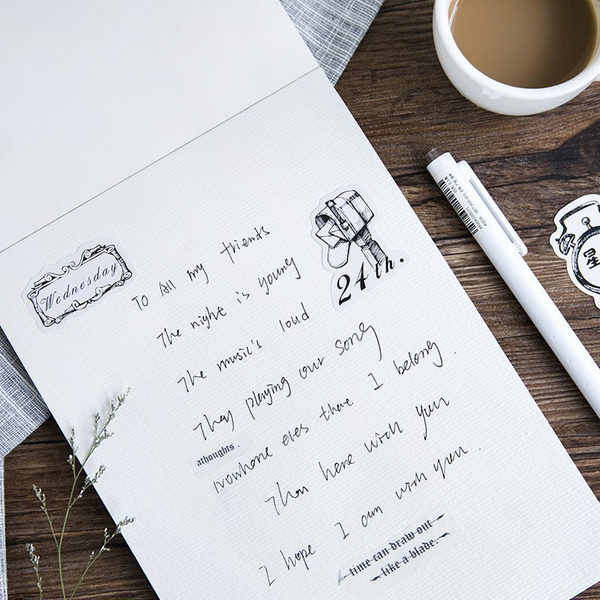 Wednesday
24th.
To All my friends
The night is young
The music's loud
They playing our song
athoughts.
Nowhere eles there I belong.
Than here with you
I hope I am with you.
time can draw out
like a blade.